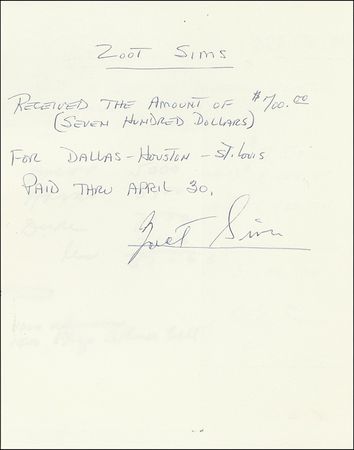 ZOOT SIMS
RECEIVED THE AMOUNT OF $700.00
(SEVEN HUNDRED DOLLARS)
FOR DALLAS - HOUSTON - ST. LOUIS
PAID THRU APRIL 30.
Zoot Sims